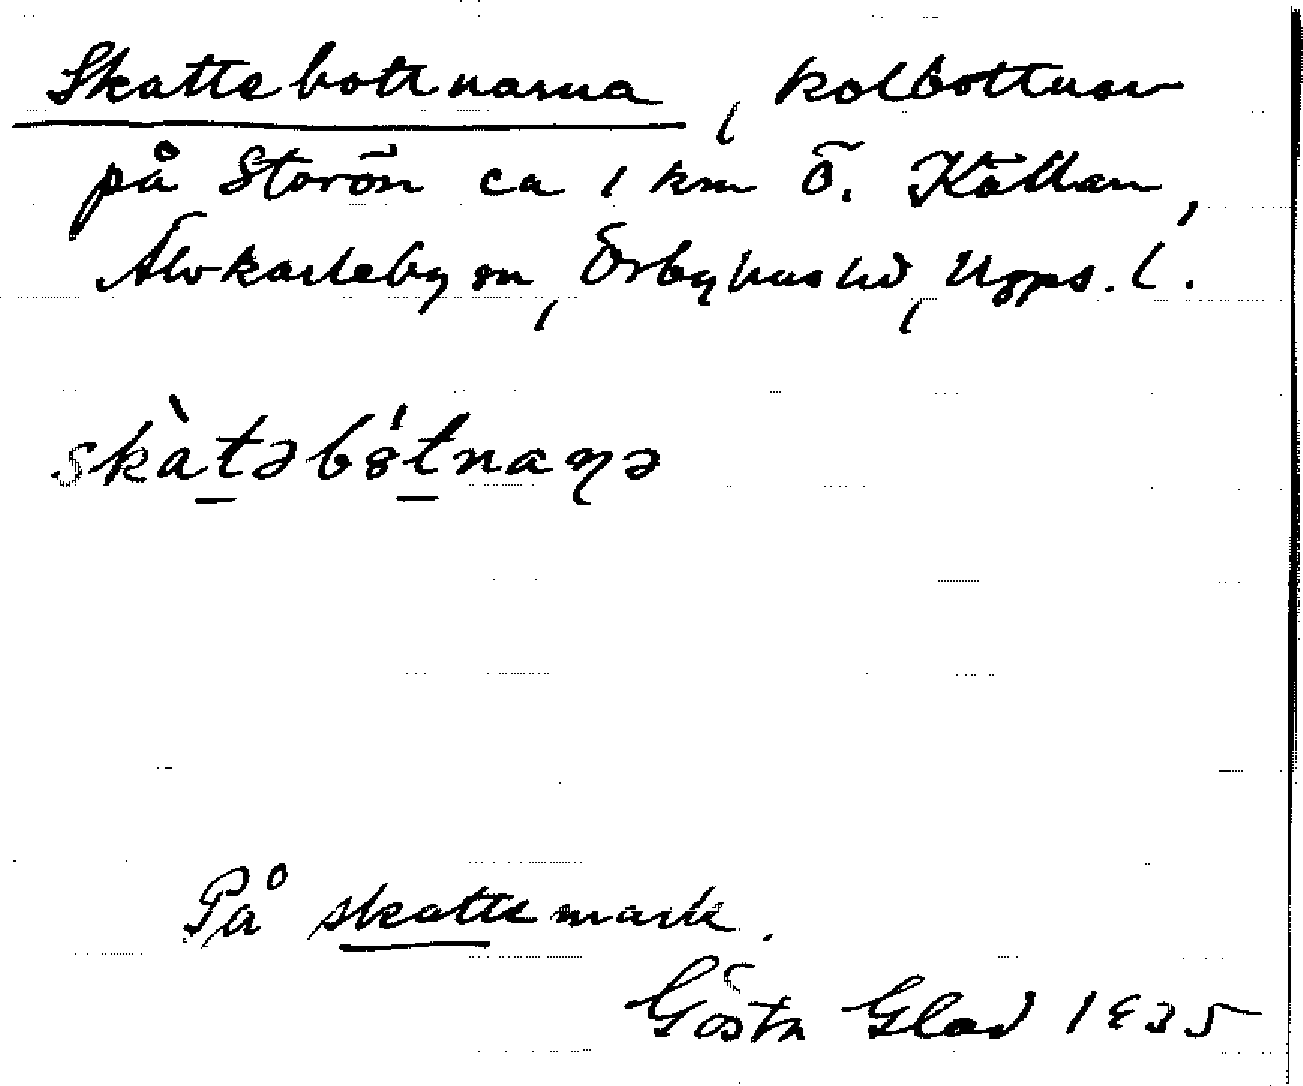 Skattebottnarna, kolbottnar
på Storön ca 1 km Ö. Kållan,
Älvkarleby sn, Örbyhus hd, Upps. l.
skàtəbß́tnaɳə
På skattemark.
Gösta Glad 1935